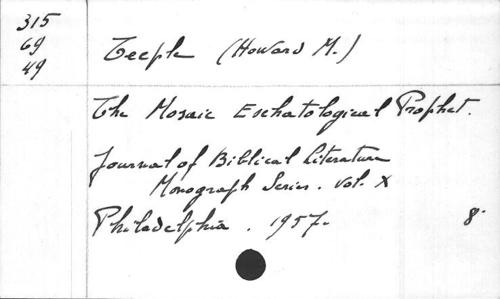 315
69
49
Teeple (Howard M.)
The Mosaic Eschatological Prophet.
Journal of Biblical Literature
Monograph Series. Vol. X
Philadelphia. 1957.
8°